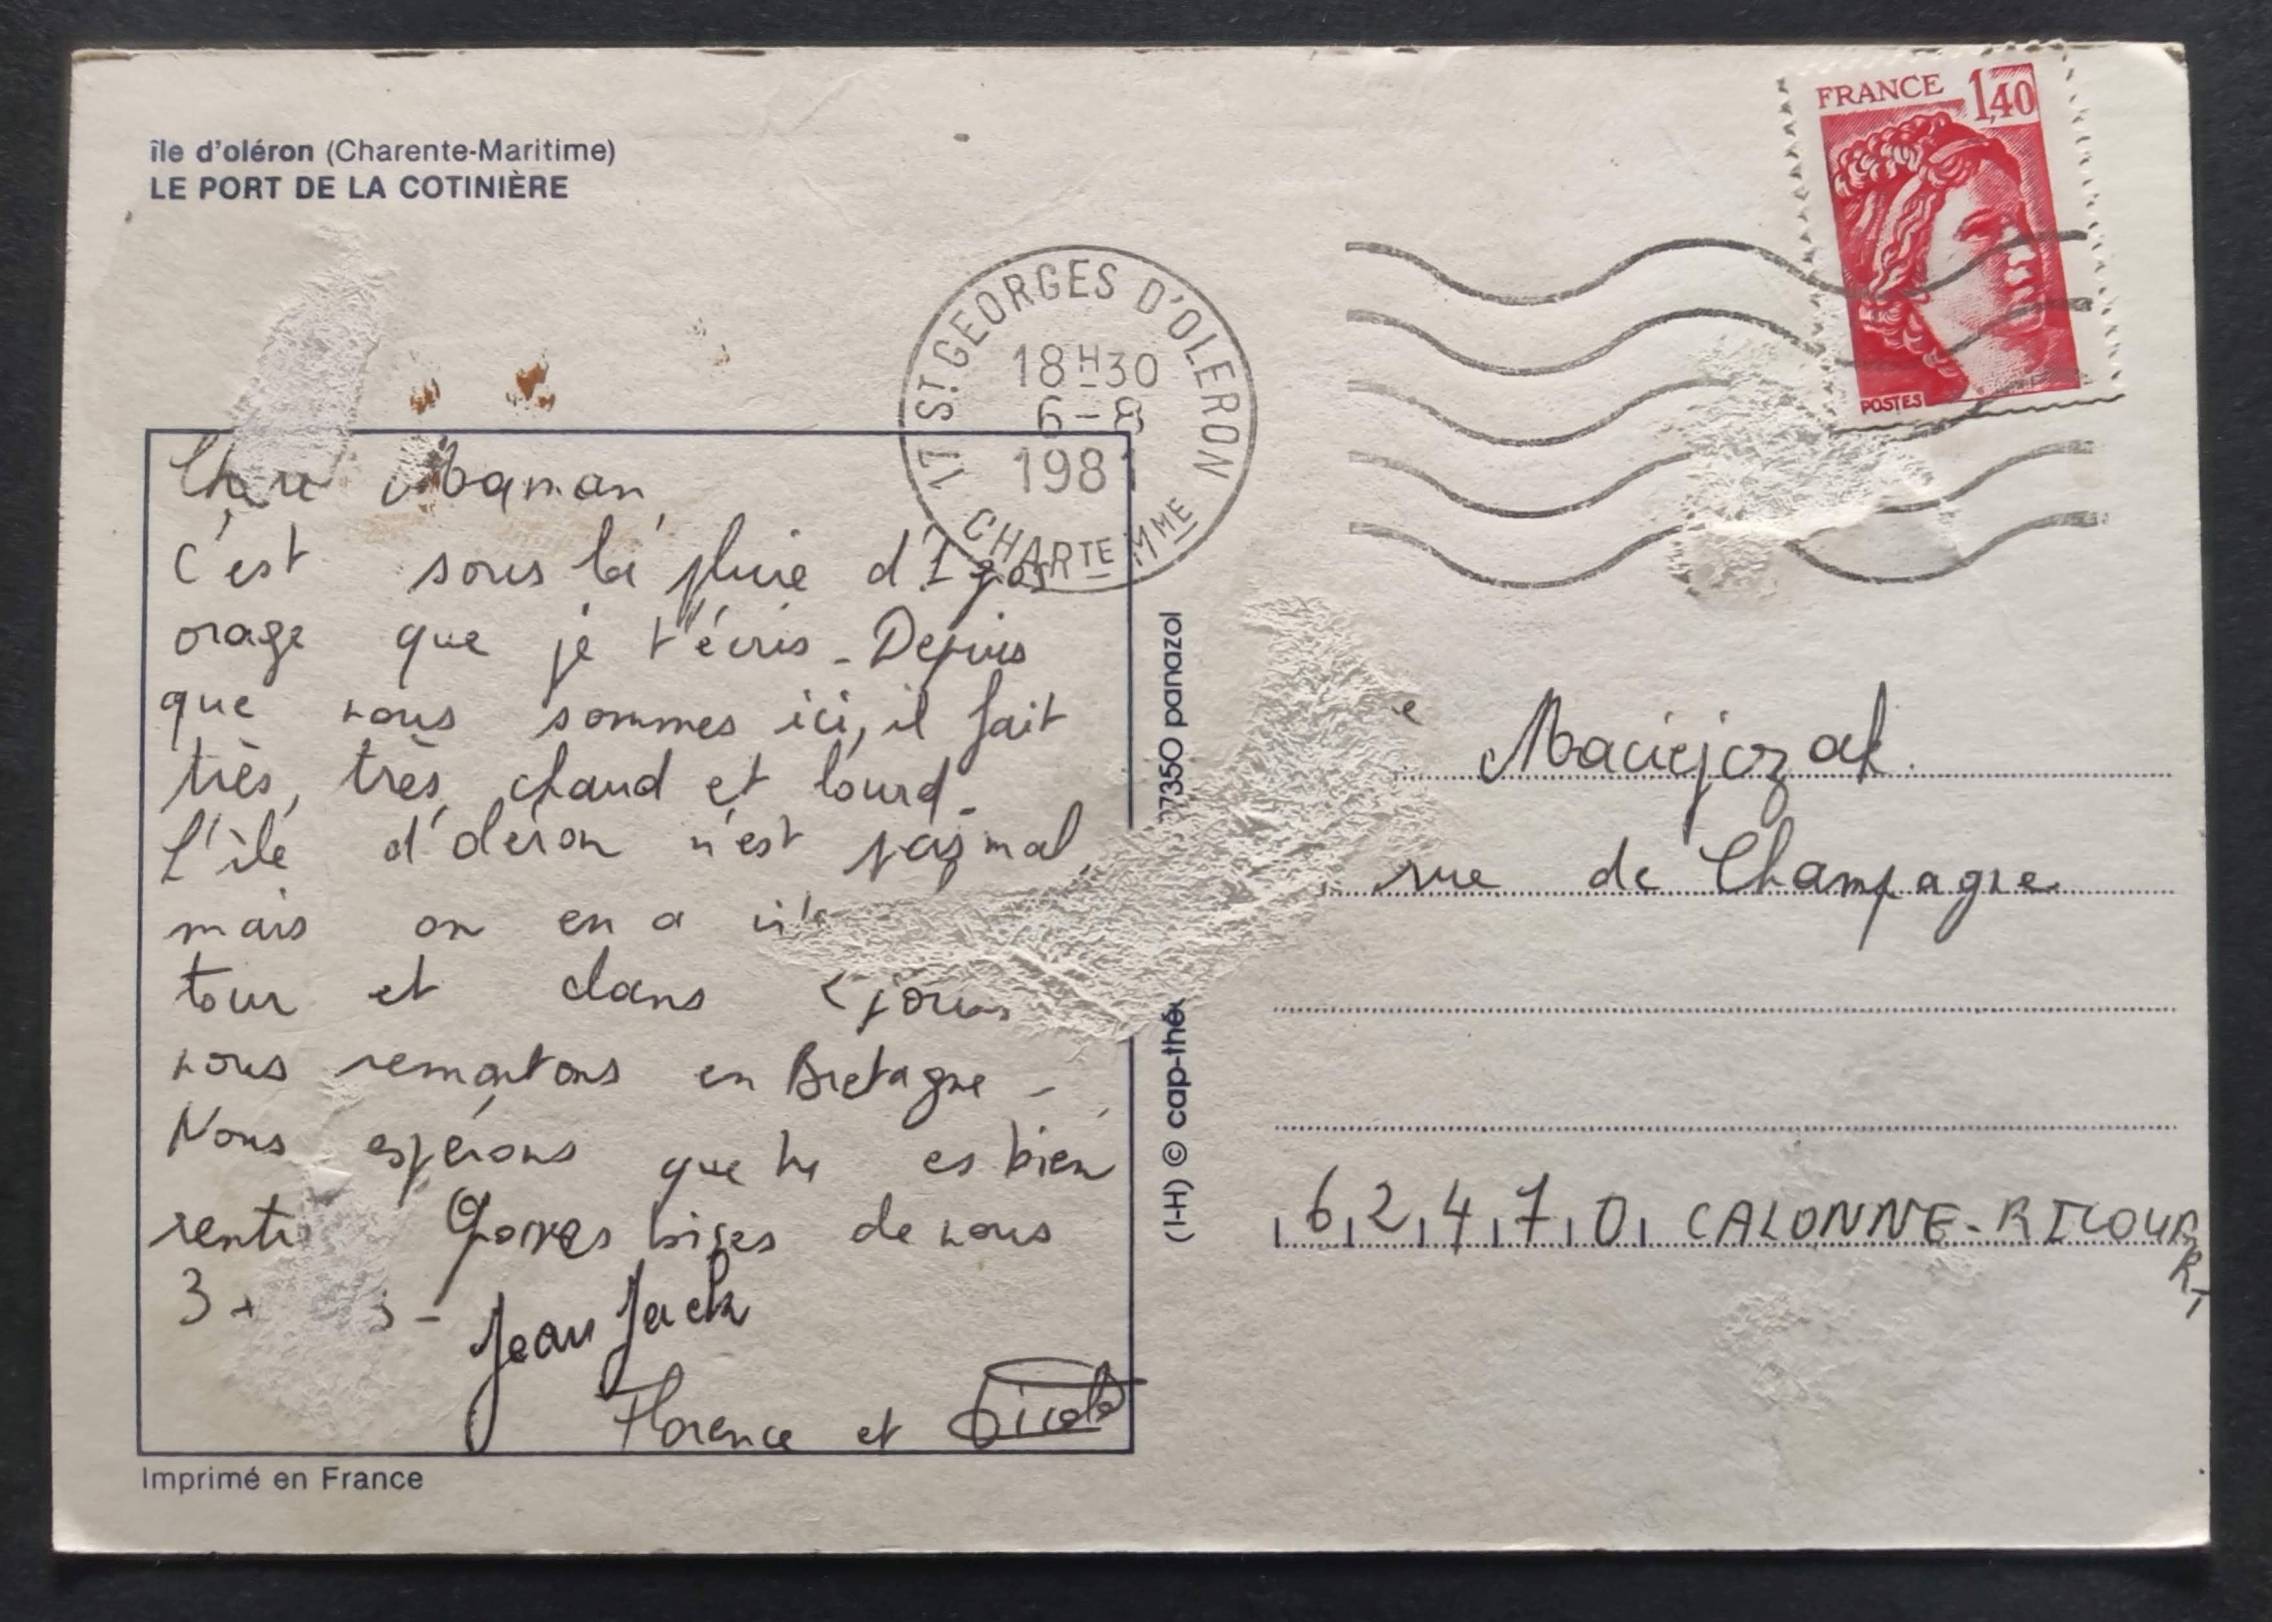 île d'oléron (Charente-Maritime)
LE PORT DE LA COTINIÈRE
FRANCE 1,40
POSTES
17 ST GEORGES D'OLERON
18H30
6-8
1981
CHARTE MME
Chère Maman,
C'est sous la pluie d'1 gros
orage que je t'écris - Depuis
que nous sommes ici, il fait
très, très, chaud et lourd -
L'île d'oléron n'est pas mal,
mais on en a
tour et dans jours
nous remontons en Bretagne -
Nous espérons que tu es bien
Grosses bises de nous
3 -
Jean Jack
Florence et
Imprimé en France
(I-H) © cap-thé 87350 panazol
Maciejczak
rue de Champagne
62470 CALONNE-RICOUART